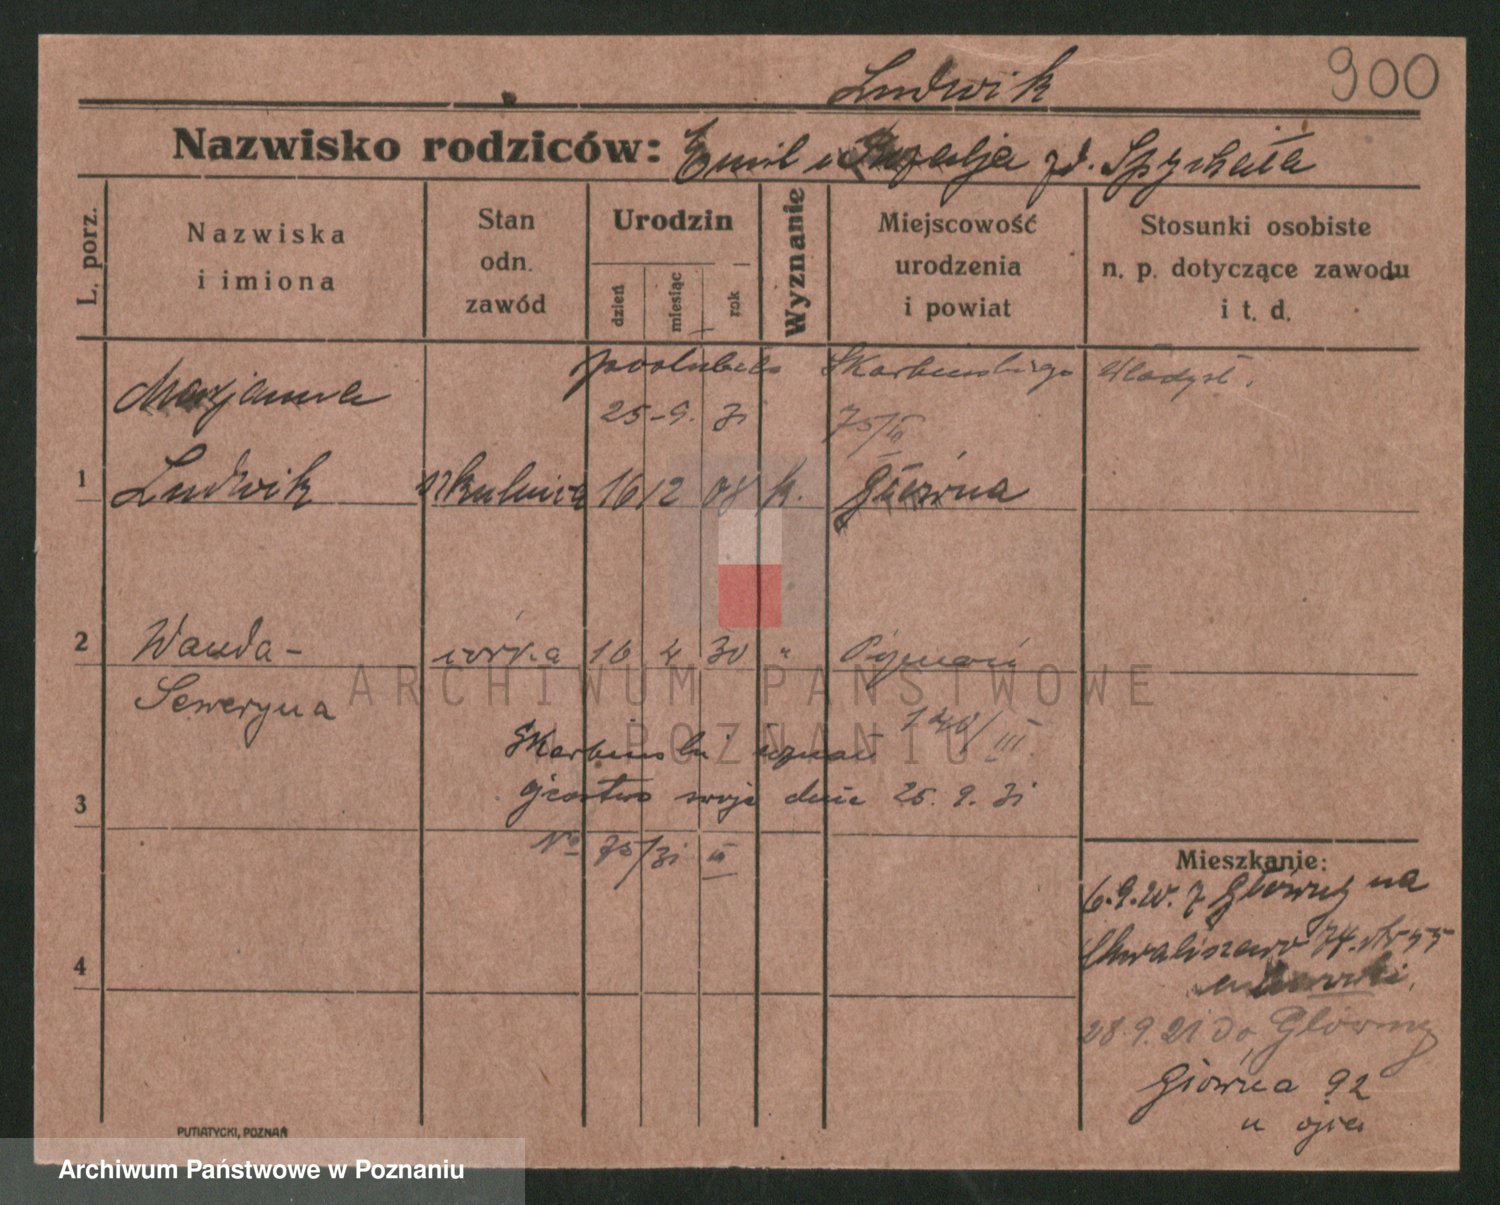 Ludwik 900
Nazwisko rodziców: Emil i Rozalja zd. Spychała
L. porz.
Nazwiska
i imiona
Stan
odn.
zawód
Urodzin
dzień
miesiąc
rok
Wyznanie
Miejscowość
urodzenia
i powiat
Stosunki osobiste
n. p. dotyczące zawodu
i t. d.
poślubiła Skarbinskiego Władysł.
Marjanna 25-9. 31 75/III
1 Ludwik 16 12 08 k. Główna
2 Wanda- córka 16 4 30 " Poznań
Seweryna
Skarbinski uznał
3 ojcostwo swoje dnia 25. 9. 31
No 75/31 III
4
Mieszkanie:
6.9.20. z Główny na
Chwaliszewo 74.
28.9.21 do Główny
Główna 92
u ojca
PUTIATYCKI, POZNAŃ
ARCHIWUM PAŃSTWOWE
POZNANIU
Archiwum Państwowe w Poznaniu